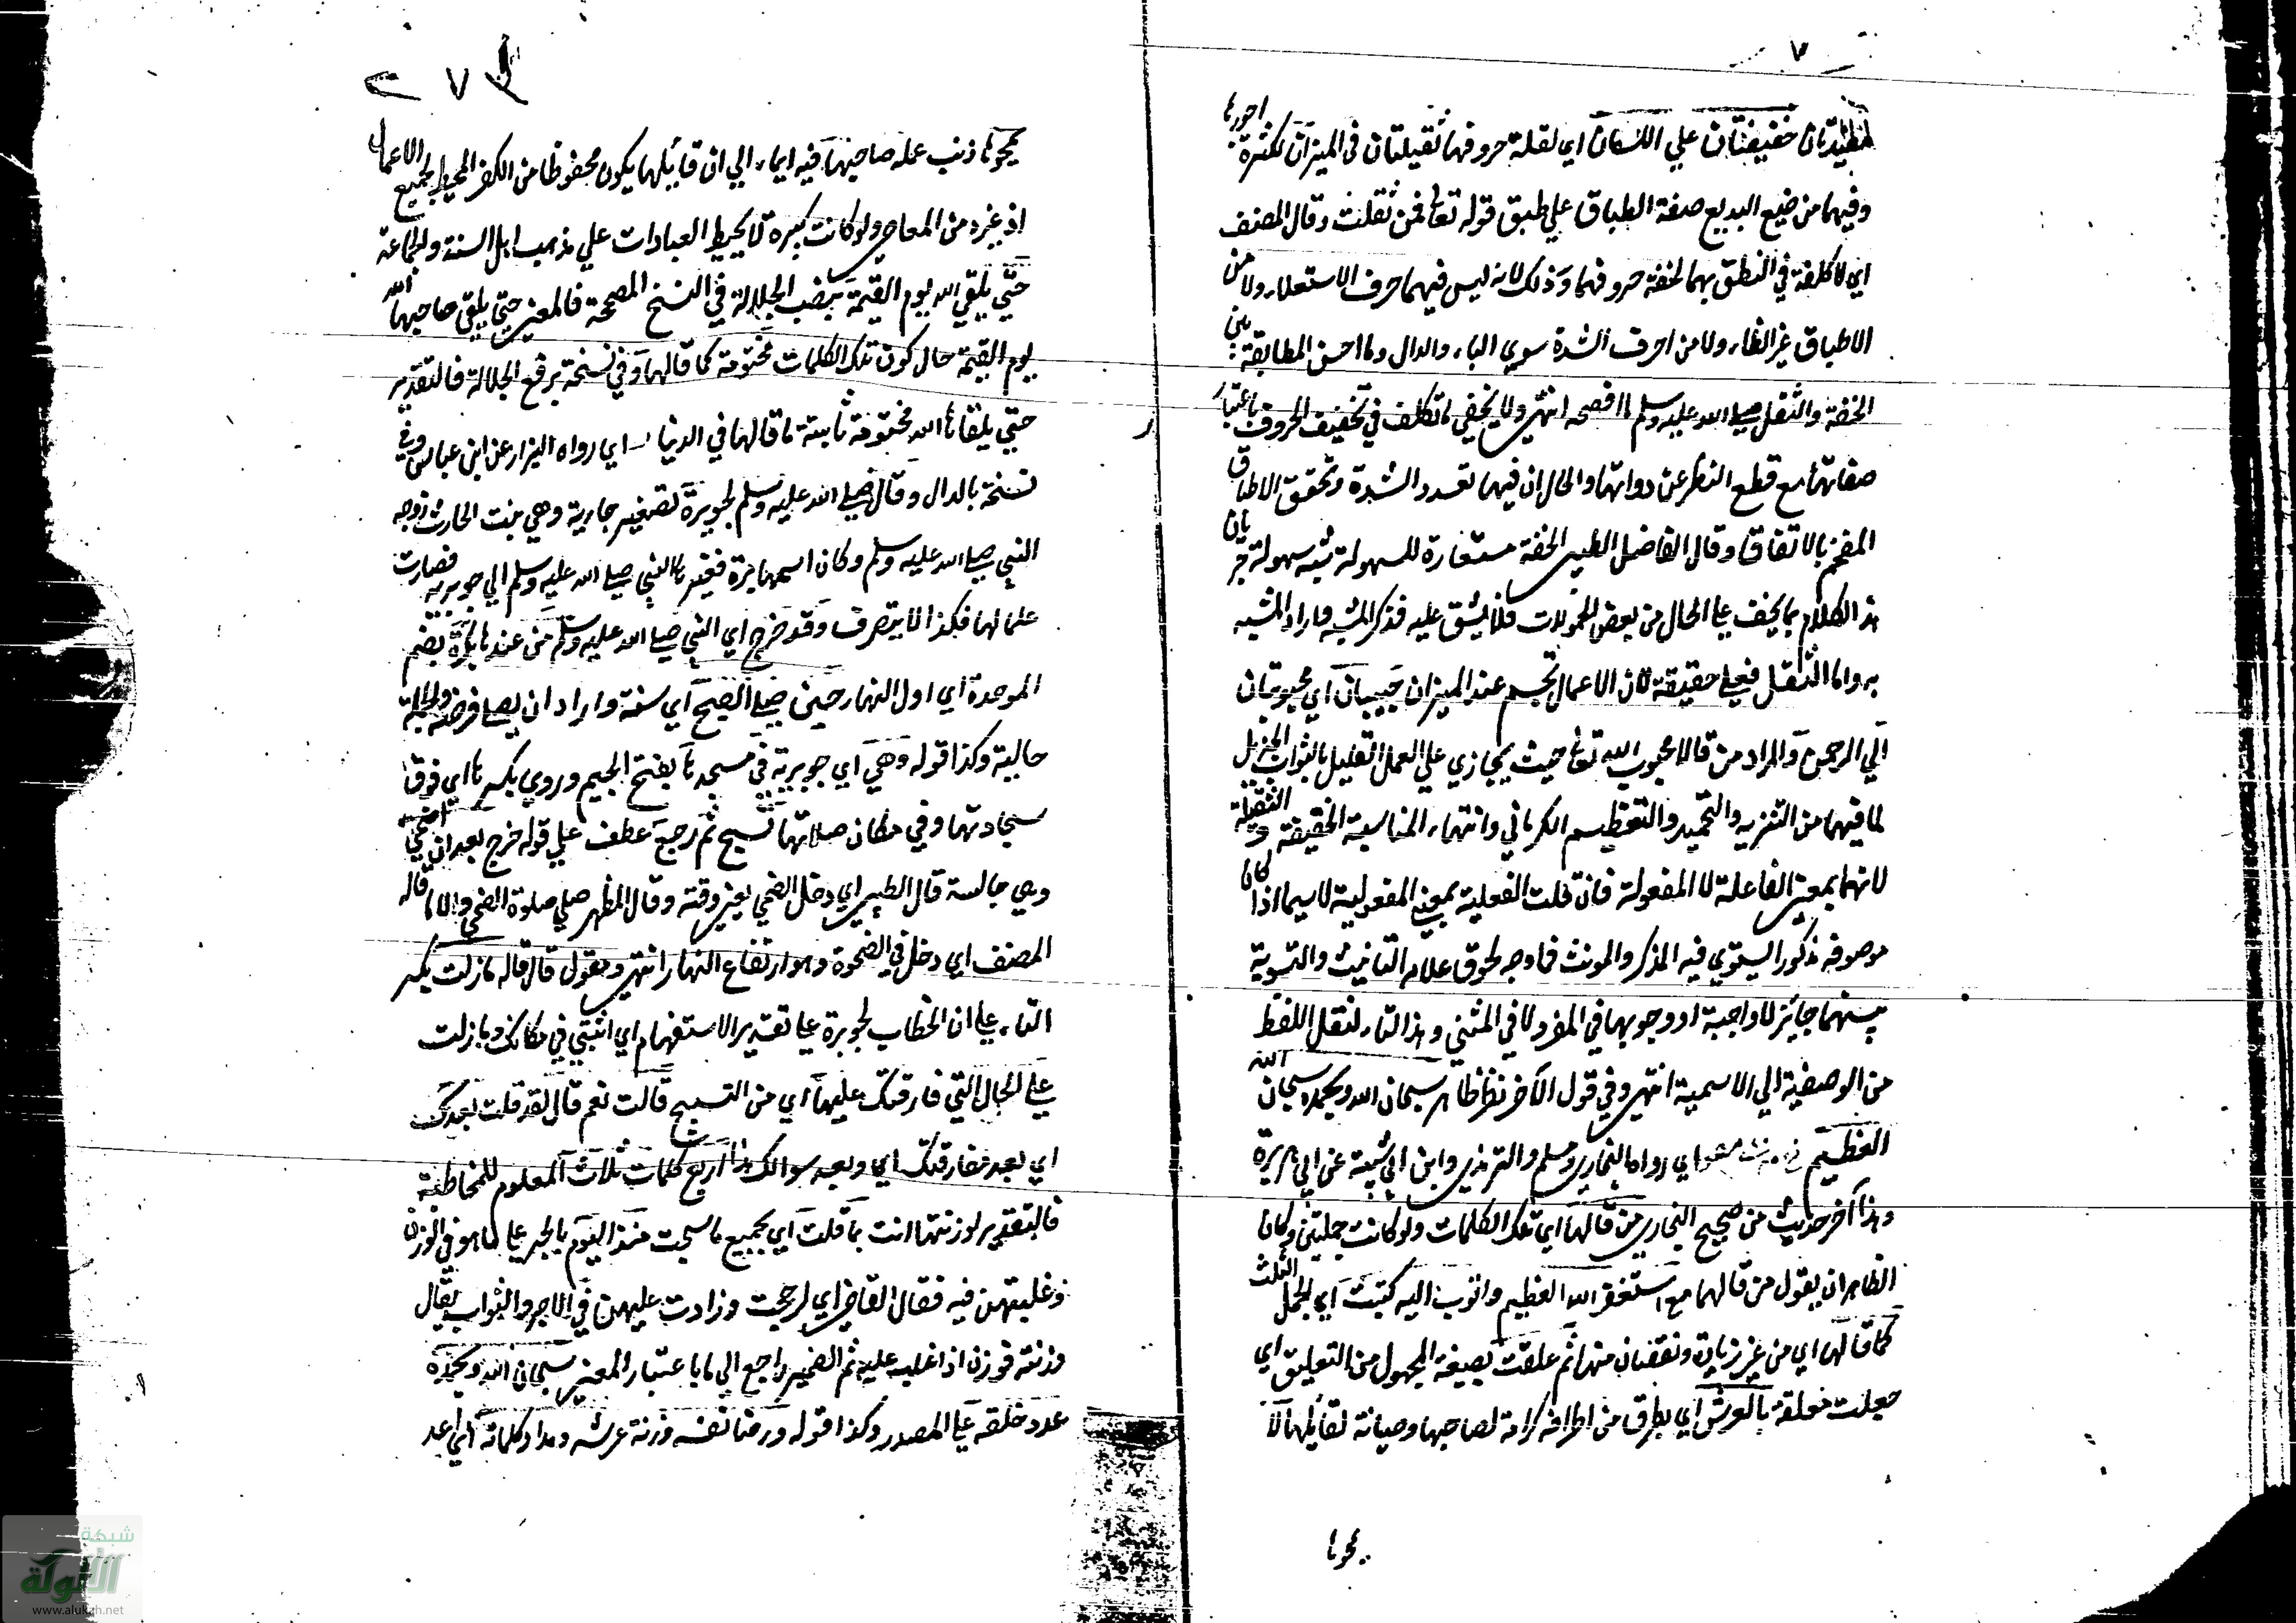 ٧
خفيفتان علي اللسان اي لقلة حروفهما ثقيلتان في الميزان لكثرة اجورها
وفيهما من ضيع البديع صفة الطباق علي طبق قوله تعالى فمن ثقلت وقال المصنف
اي لا كلفة في النطق بهما لخفة حروفهما وذلك لانه ليس فيهما حرف الاستعلاء ولا من
الاطباق غير الظاء ولا من احرف الشدة سوي الباء والدال وما احسن المطابقة بين
الخفة والثقل صلى الله عليه وسلم ما افصحه انتهى ولا يخفي ما تكلف في تخفيف الحروف باعتبار
صفاتها مع قطع النظر عن ذواتها والحال ان فيهما تعدد الشدة وتحقق الاطباق
المفخم بالاتفاق وقال الفاضل الطيبي الخفة مستعارة للسهولة شبه سهولة جريان
هذا الكلام بما يخف على الحال من بعض المحمولات فلا يشق عليه فذكر المشبه واراد المشبه
به واما الثقل فعلى حقيقة لان الاعمال تجسم عند الميزان حبيبتان اي محبوبتان
الي الرحمن والمراد من قالها محبوب الله تعالى حيث يجازي علي العمل القليل بالثواب الجزيل
لما فيهما من التنزيه والتحميد والتعظيم الكرماني وانتهاء المناسبة الخفيفة و الثقيلة
لانهما بمعنى الفاعلة لا المفعولة فان قلت الفعلية بمعنى المفعولية لا سيما اذا كان
موصوفه مذكورا يستوي فيه المذكر والمونث فما وجه لحوق علامة التانيث والتسوية
بينهما جائز لا واجبة او وجوبهما في المفرد لا في المثني وهذا التاء لنقل اللفظ
من الوصفية الي الاسمية انتهى وفي قول الآخر نظر ظاهر سبحان الله وبحمده سبحان الله
العظيم اي رواه البخاري ومسلم والترمذي وابن ابي شيبة عن ابي هريرة
وهذا آخر حديث من صحيح البخاري من قالها اي تلك الكلمات ولو كانت جملتين وكان
الظاهر ان يقول من قالهما مع استغفر الله العظيم واتوب اليه كتبت اي الجمل الثلث
كما قالها اي من غير زيادة ونقصان منها ثم علقت بصيغة المجهول من التعليق اي
جعلت معلقة بالعرش اي بطرق من اطرافه كرامة لصاحبها وصيانة لقائلها لا
يمحوها
٧
يمحوها ذنب عمله صاحبها فيه ايماء الي ان قائلها يكون محفوظا من الكفر المحيط لجميع الاعمال
اذ غيره من المعاصي ولو كانت كبيرة لا يحيط العبادات علي مذهب اهل السنة والجماعة
حتي يلقي الله يوم القيمة بنصب الجلالة في النسخ المصححة فالمعنى حتي يلقي صاحبها الله
يوم القيمة حال كون تلك الكلمات مختومة كما قالها وفي نسخة برفع الجلالة فالتقدير
حتي يلقاها الله مختومة ثابتة ما قالها في الدنيا اي رواه البزار عن ابن عباس وفي
نسخة بالدال وقال صلى الله عليه وسلم لجويرة تصغير جارية وهي بنت الحارث زوجه
النبي صلى الله عليه وسلم وكان اسمها برة فغيرها النبي صلى الله عليه وسلم الي جويرية فصارت
علما لها فكذا لا يتصرف وقد خرج اي النبي صلى الله عليه وسلم من عندها بكرة بضم
الموحدة اي اول النهار حين صلى الصبح اي سنة واراد ان يصلي فرضه والجملة
حالية وكذا قوله وهي اي جويرية في مسجدها بفتح الجيم وروي بكسرها اي فوق
سجادتها وفي مكان صلاتها تسبح ثم رجع عطف علي قوله خرج بعد ان اضحي
وهي جالسة قال الطيبي اي دخل الضحي بغير وقته وقال المظهر صلي صلوة الضحي والا ما قاله
المصنف اي دخل في الضحوة وهو ارتفاع النهار انتهى وبقول قال قاله ما زلت بكسر
التاء على ان الخطاب لجويرة على تقدير الاستفهام اي اثبتي في مكانك وما زلت
على الحال التي فارقتك عليها اي من التسبيح قالت نعم قال لقد قلت بعدك
اي بعد مفارقتك اي وبعد سوالك هذا اربع كلمات ثلاث المعلوم للمخاطبة
فالتقدير لوزنتها انت بما قلت اي بجميع ما سبحت منذ اليوم بالجر على ما هو في الوزن
وغلبتهن فيه فقال القاضي اي لرجحت وزادت عليهن في الاجر والثواب يقال
وزنته فوزن اذا غلب عليه ثم الضمير راجع الي ما باعتبار المعنى سبحان الله وبحمده
عدد خلقه على المصدر وكذا قوله ورضا نفسه وزنة عرشه ومداد كلماته اي عد
شبكة
الألوكة
www.alukah.net